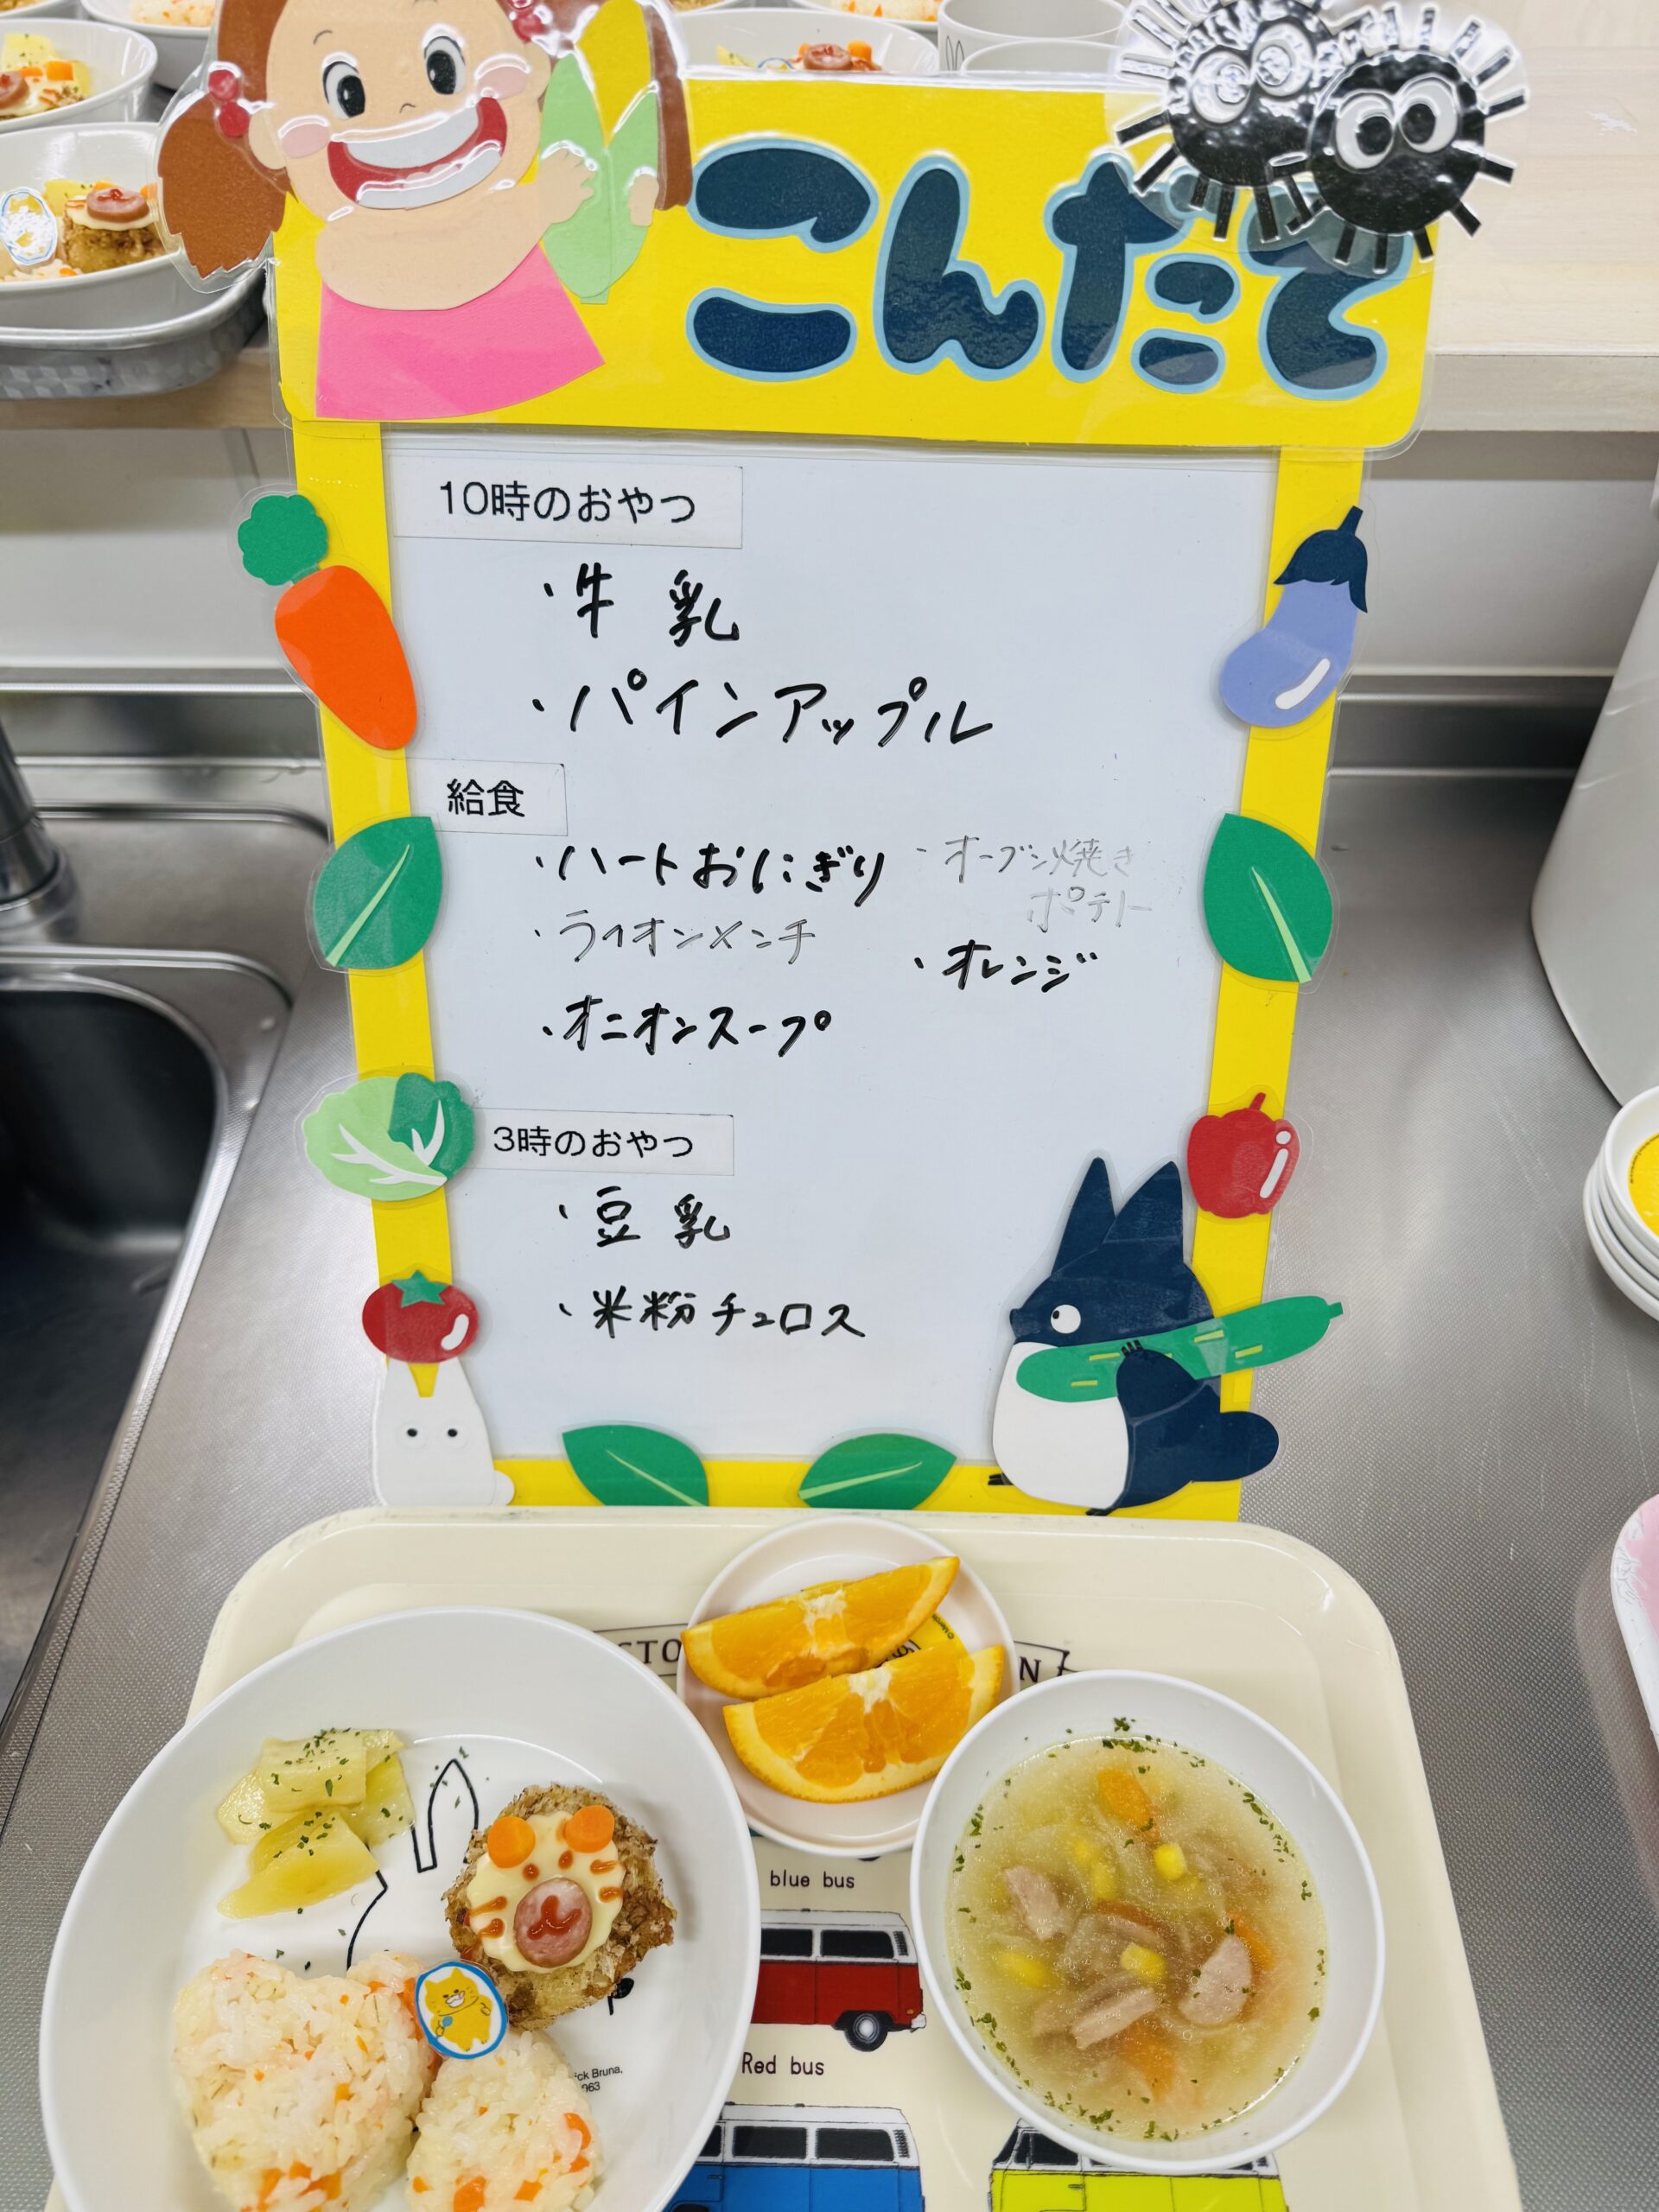 こんだて
10時のおやつ
・牛乳
・パインアップル
給食
・ハートおにぎり
・ライオンメンチ
・オニオンスープ
・オーブン焼き
ポテト
・オレンジ
3時のおやつ
・豆乳
・米粉チュロス
STO
N
blue bus
Red bus
ick Bruna,